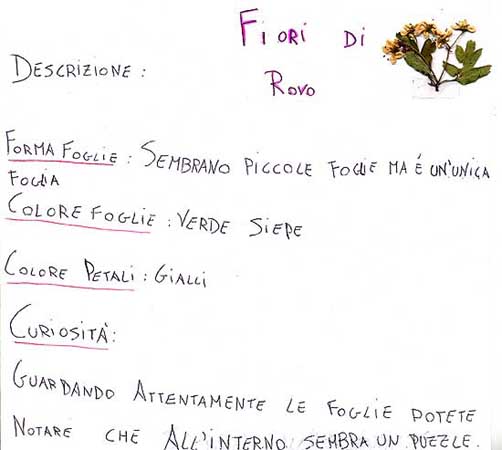 Fiori di
Descrizione:
Rovo
Forma Foglie: Sembrano piccole foglie ma é un'unica
foglia
Colore foglie: verde siepe
Colore Petali: Gialli
Curiosità:
Guardando Attentamente le foglie potete
Notare che all'interno sembra un puzzle.